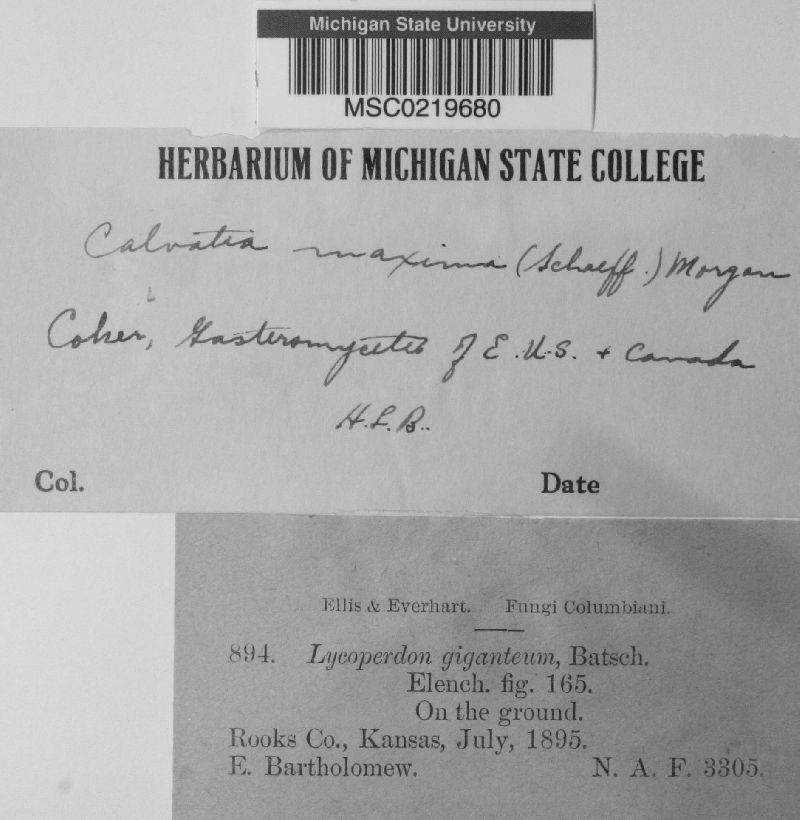 Michigan State University
MSC0219680
HERBARIUM OF MICHIGAN STATE COLLEGE
Calvatia maxima (Schaeff.) Morgan
Coker, Gasteromycetes of E. U.S. + Canada
H.L.B.
Col. Date
Ellis & Everhart. Fungi Columbiani.
894. Lycoperdon giganteum, Batsch.
Elench. fig. 165.
On the ground.
Rooks Co., Kansas, July, 1895.
E. Bartholomew. N. A. F. 3305.